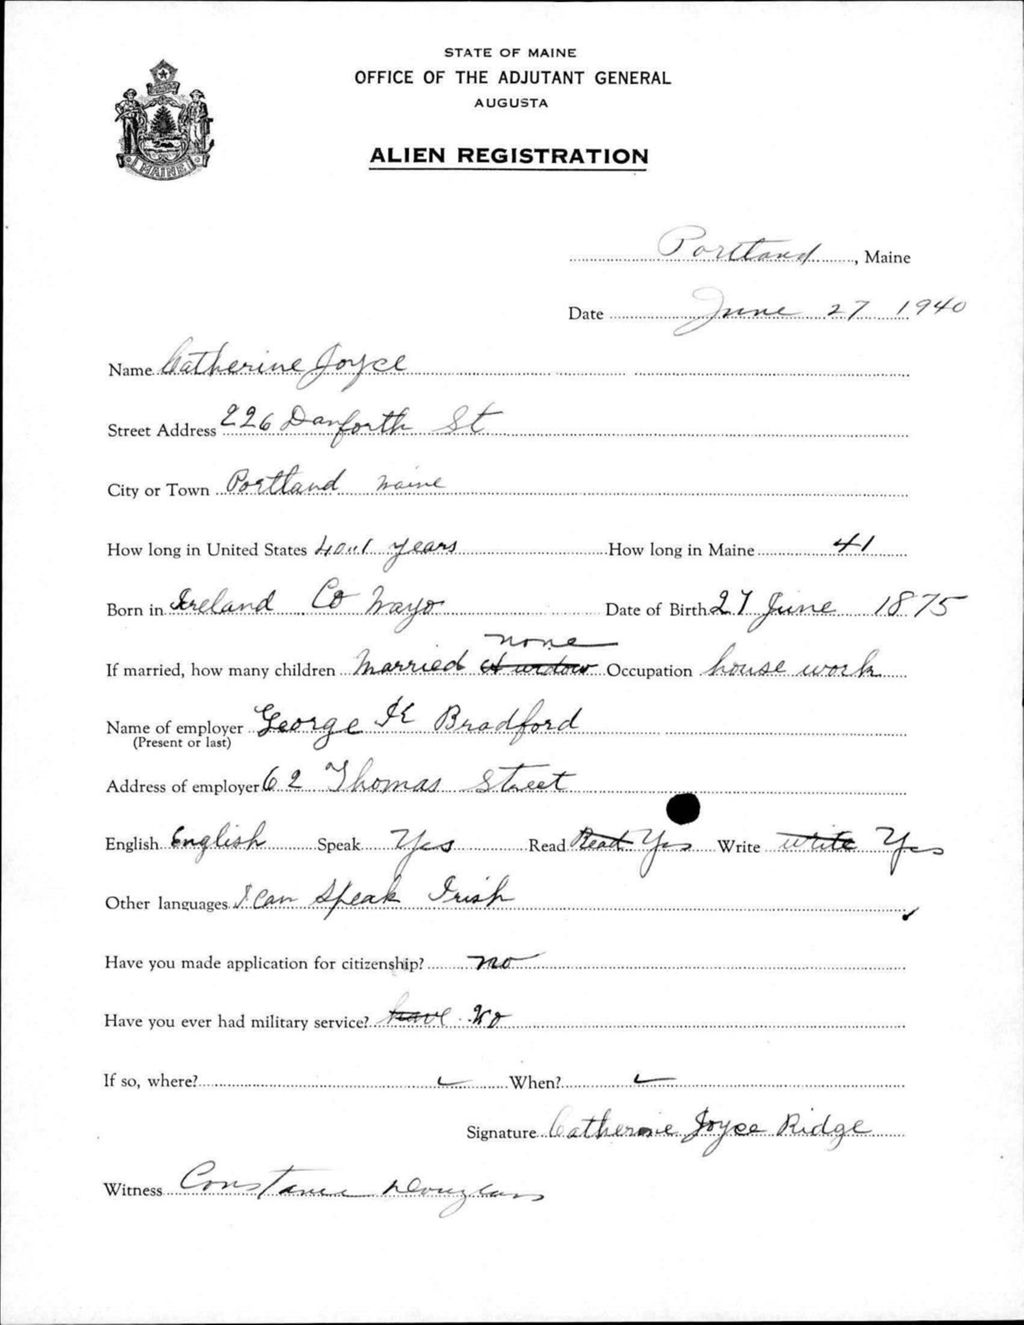 STATE OF MAINE
OFFICE OF THE ADJUTANT GENERAL
AUGUSTA
ALIEN REGISTRATION
MAINE
Portland, Maine
Date June 27 1940
Name Catherine Joyce
Street Address 226 Danforth St
City or Town Portland Maine
How long in United States years How long in Maine 41
Born in Ireland Co Mayo Date of Birth 27 June 1875
none
If married, how many children Married A widow Occupation house work
Name of employer George H Bradford
(Present or last)
Address of employer 62 Thomas Street
English English Speak Yes Read Read Yes Write write Yes
Other languages I Can Speak Irish
Have you made application for citizenship? no
Have you ever had military service? have No
If so, where? When?
Signature Catherine Joyce Ridge
Witness Constance Douglass